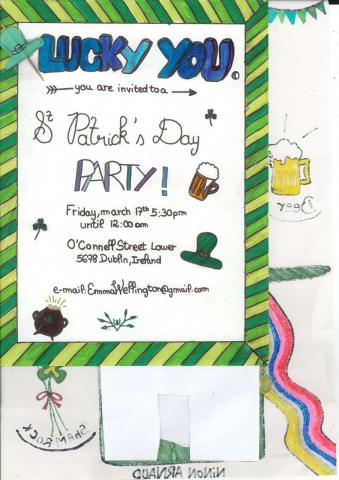 LUCKY YOU.
you are invited to a
St Patrick's Day
PARTY!
Friday, march 17th 5:30pm
until 12:00am
O'Connell Street Lower
5698 Dublin, Ireland
e-mail: EmmaWellington@gmail.com
Beer
SHAMROCK
NINON ARNAUD